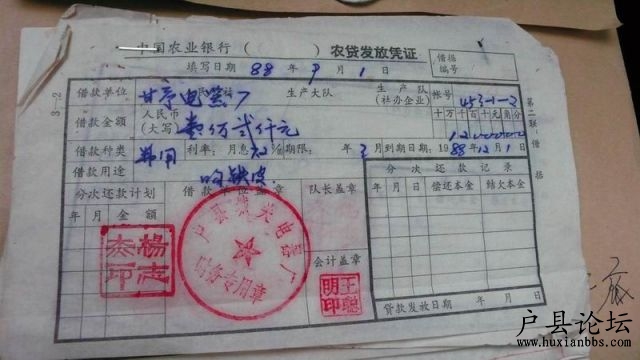 中国农业银行（ ）农贷发放凭证
借据
编号
填写日期 88 年 9 月 1 日
3—2
借款单位 生产大队 生产队
(社办企业) 帐号 453-1-2
借款金额 人民币
(大写) 壹万贰仟元
十万千百十元角分
借款种类 利率：月息 ‰ 期限： 年 3 月 到期日期：1988年12月1日
借款用途
第二联：借据
分次还款计划 借款单位盖章 队长盖章 分次还款记录
年 月 金额 年 月 日 偿还本金 结欠本金
会计盖章
贷款发放日期 年 月 日
杨志杰印
财务专用章
王聪明印
户县论坛
www.huxianbbs.com